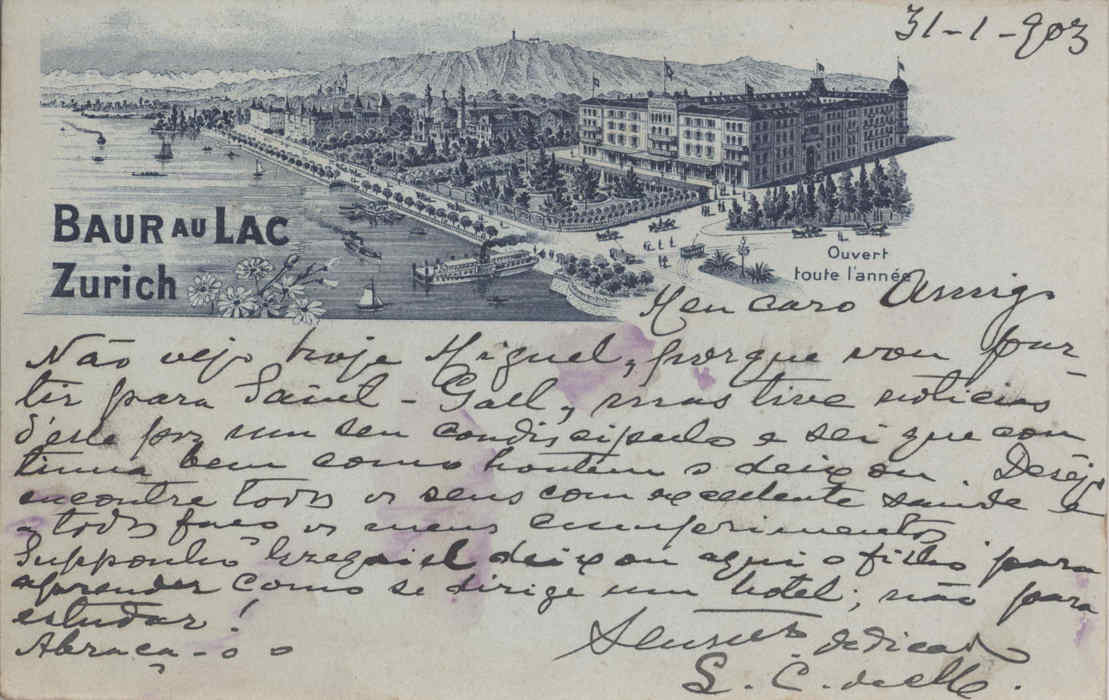 31-1-903
BAUR AU LAC
Zurich
Ouvert
toute l'année
Meu caro Amigo
Não vejo hoje Miguel, porque vou par-
tir para Saint-Gall, mas tive noticias
d'elle por um seu condiscipulo e sei que con
tinua bem como hontem o deixou Desejo
encontre todos os seus com excellente saude e
a todos faço os meus cumprimentos
Supponho deixou aqui o filho para
aprender como se dirige um hotel; não para
estudar!
Abraça-o o
dedicado
S. C.